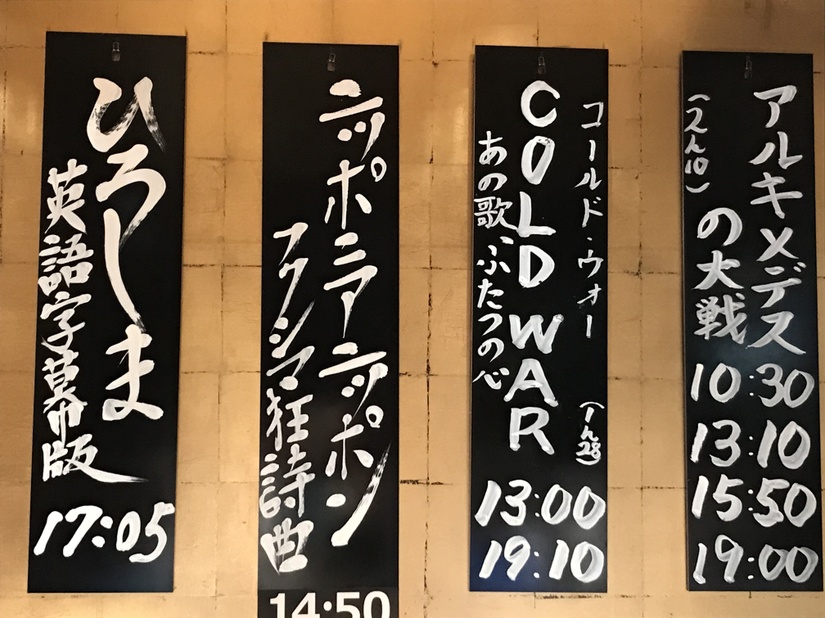 アルキメデス
の大戦
(2h10)
10:30
13:10
15:50
19:00
コールド・ウォー (1h28)
COLD WAR
あの歌、ふたつの心
13:00
19:10
ニッポニアニッポン
フクシマ狂詩曲
14:50
ひろしま
英語字幕版
17:05